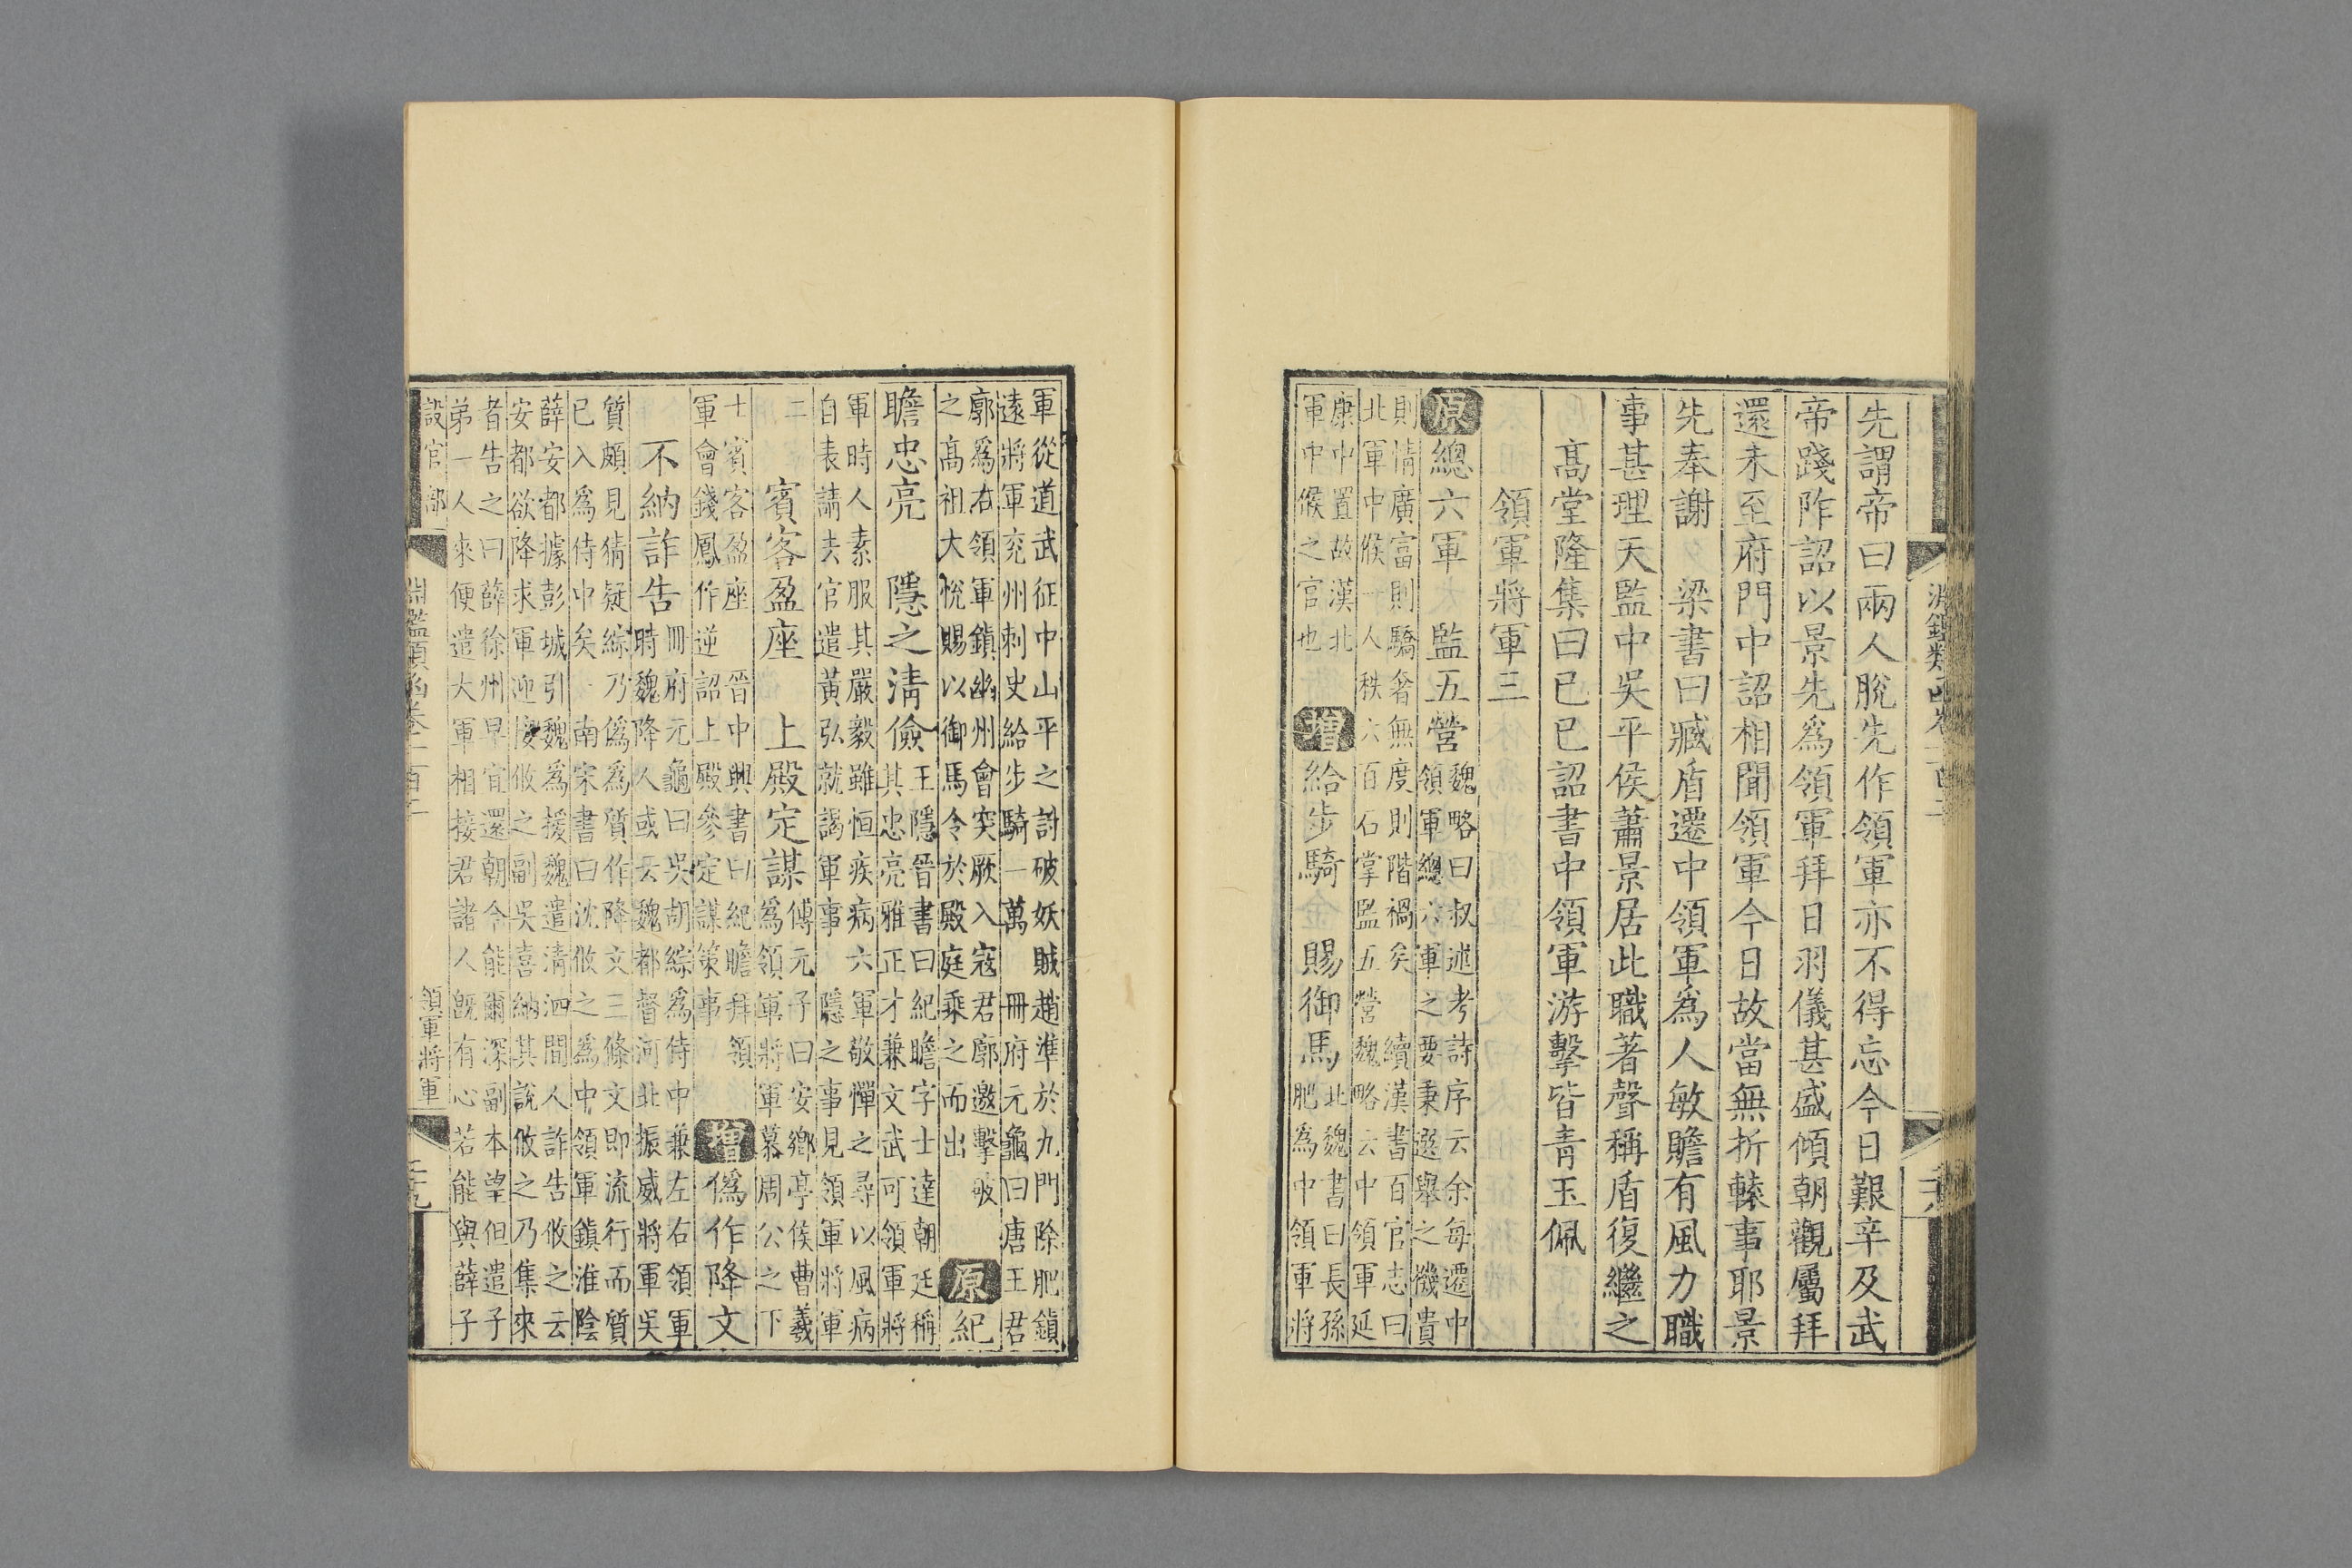 先謂帝曰兩人脫先作領軍亦不得忘今日艱辛及武
帝踐阼詔以景先爲領軍拜日羽儀甚盛傾朝觀屬拜
還未至府門中詔相聞領軍今日故當無折轅事耶景
先奉謝　梁書曰臧盾遷中領軍爲人敏贍有風力職
事甚理天監中吳平侯蕭景居此職著聲稱盾復繼之
高堂隆集曰已巳詔書中領軍游擊皆青玉佩
領軍將軍三
原總六軍　監五營
魏略曰叔述考詩序云余每遷中
領軍總六軍之要秉選舉之機貴
則情廣富則驕奢無度則階禍矣　續漢書百官志曰
北軍中候一人秩六百石掌監五營魏略云中領軍延
康中置故漢北
軍中候之官也
增給步騎　賜御馬
北魏書曰長孫
肥爲中領軍將
軍從道武征中山平之討破妖賊趙準於九門除肥鎮
遠將軍兗州刺史給步騎一萬　冊府元龜曰唐王君
廓爲右領軍鎮幽州會突厥入寇君廓邀擊破
之高祖大悅賜以御馬令於殿庭乘之而出
原紀
瞻忠亮　隱之清儉
王隱晉書曰紀瞻字士達朝廷稱
其忠亮雅正才兼文武可領軍將
軍時人素服其嚴毅雖恒疾病六軍敬憚之尋以風病
自表請去官遣黃弘就謁軍事　隱之事見領軍將軍
二
賓客盈座　上殿定謀
傅元子曰安鄉亭侯曹羲
爲領軍將軍慕周公之下
士賓客盈座　晉中興書曰紀瞻拜領
軍會錢鳳作逆詔上殿參定謀策事
增僞作降文
不納詐告
冊府元龜曰吳胡綜爲侍中兼左右領軍
時魏降人或云魏都督河北振威將軍吳
質頗見猜疑綜乃僞爲質作降文三條文即流行而質
已入爲侍中矣　南宋書曰沈攸之爲中領軍鎮淮陰
薛安都據彭城引魏爲援魏遣清泗間人詐告攸之云
安都欲降求軍迎接攸之副吳喜納其說攸之乃集來
者告之曰薛徐州早宜還朝今能爾深副本望但遣子
弟一人來便遣大軍相接君諸人既有心若能與薛子
設官部
淵鑑類函卷一百二
領軍將軍